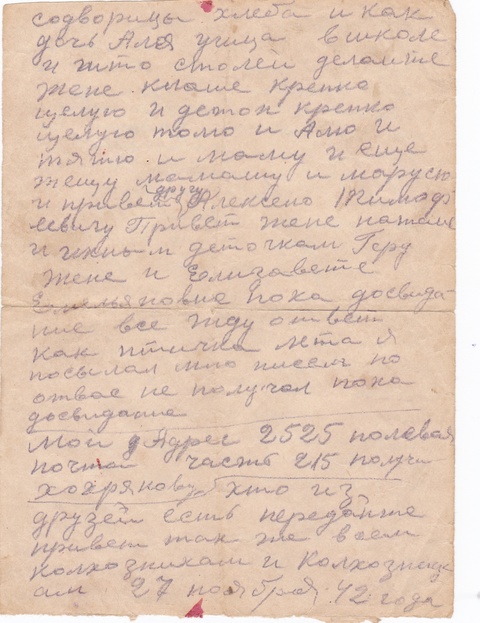 содворицы хлеба и как
дочь Аля учица в школе
и што столей делаите
жене клаше крепко
целую и деток крепко
целую томо и Алю и
тятю и маму и еще
тещу мамашу и марусю
и привет другу Алексею Тимофе
евичу Привет жене наташе
и ихным деточкам Геру
жене и Елизавете
Емельяновне пока досвида
ние все жду ответ
как птичка лета я
посылал мно писем но
ответ не получал пока
досвидание
Мой Адрес 2525 полевая
почта часть 215 получи
хохрякову хто из
друзей есть передайте
привет так же всем
колхозникам и колхозниц
ам 27 ноября 42 года